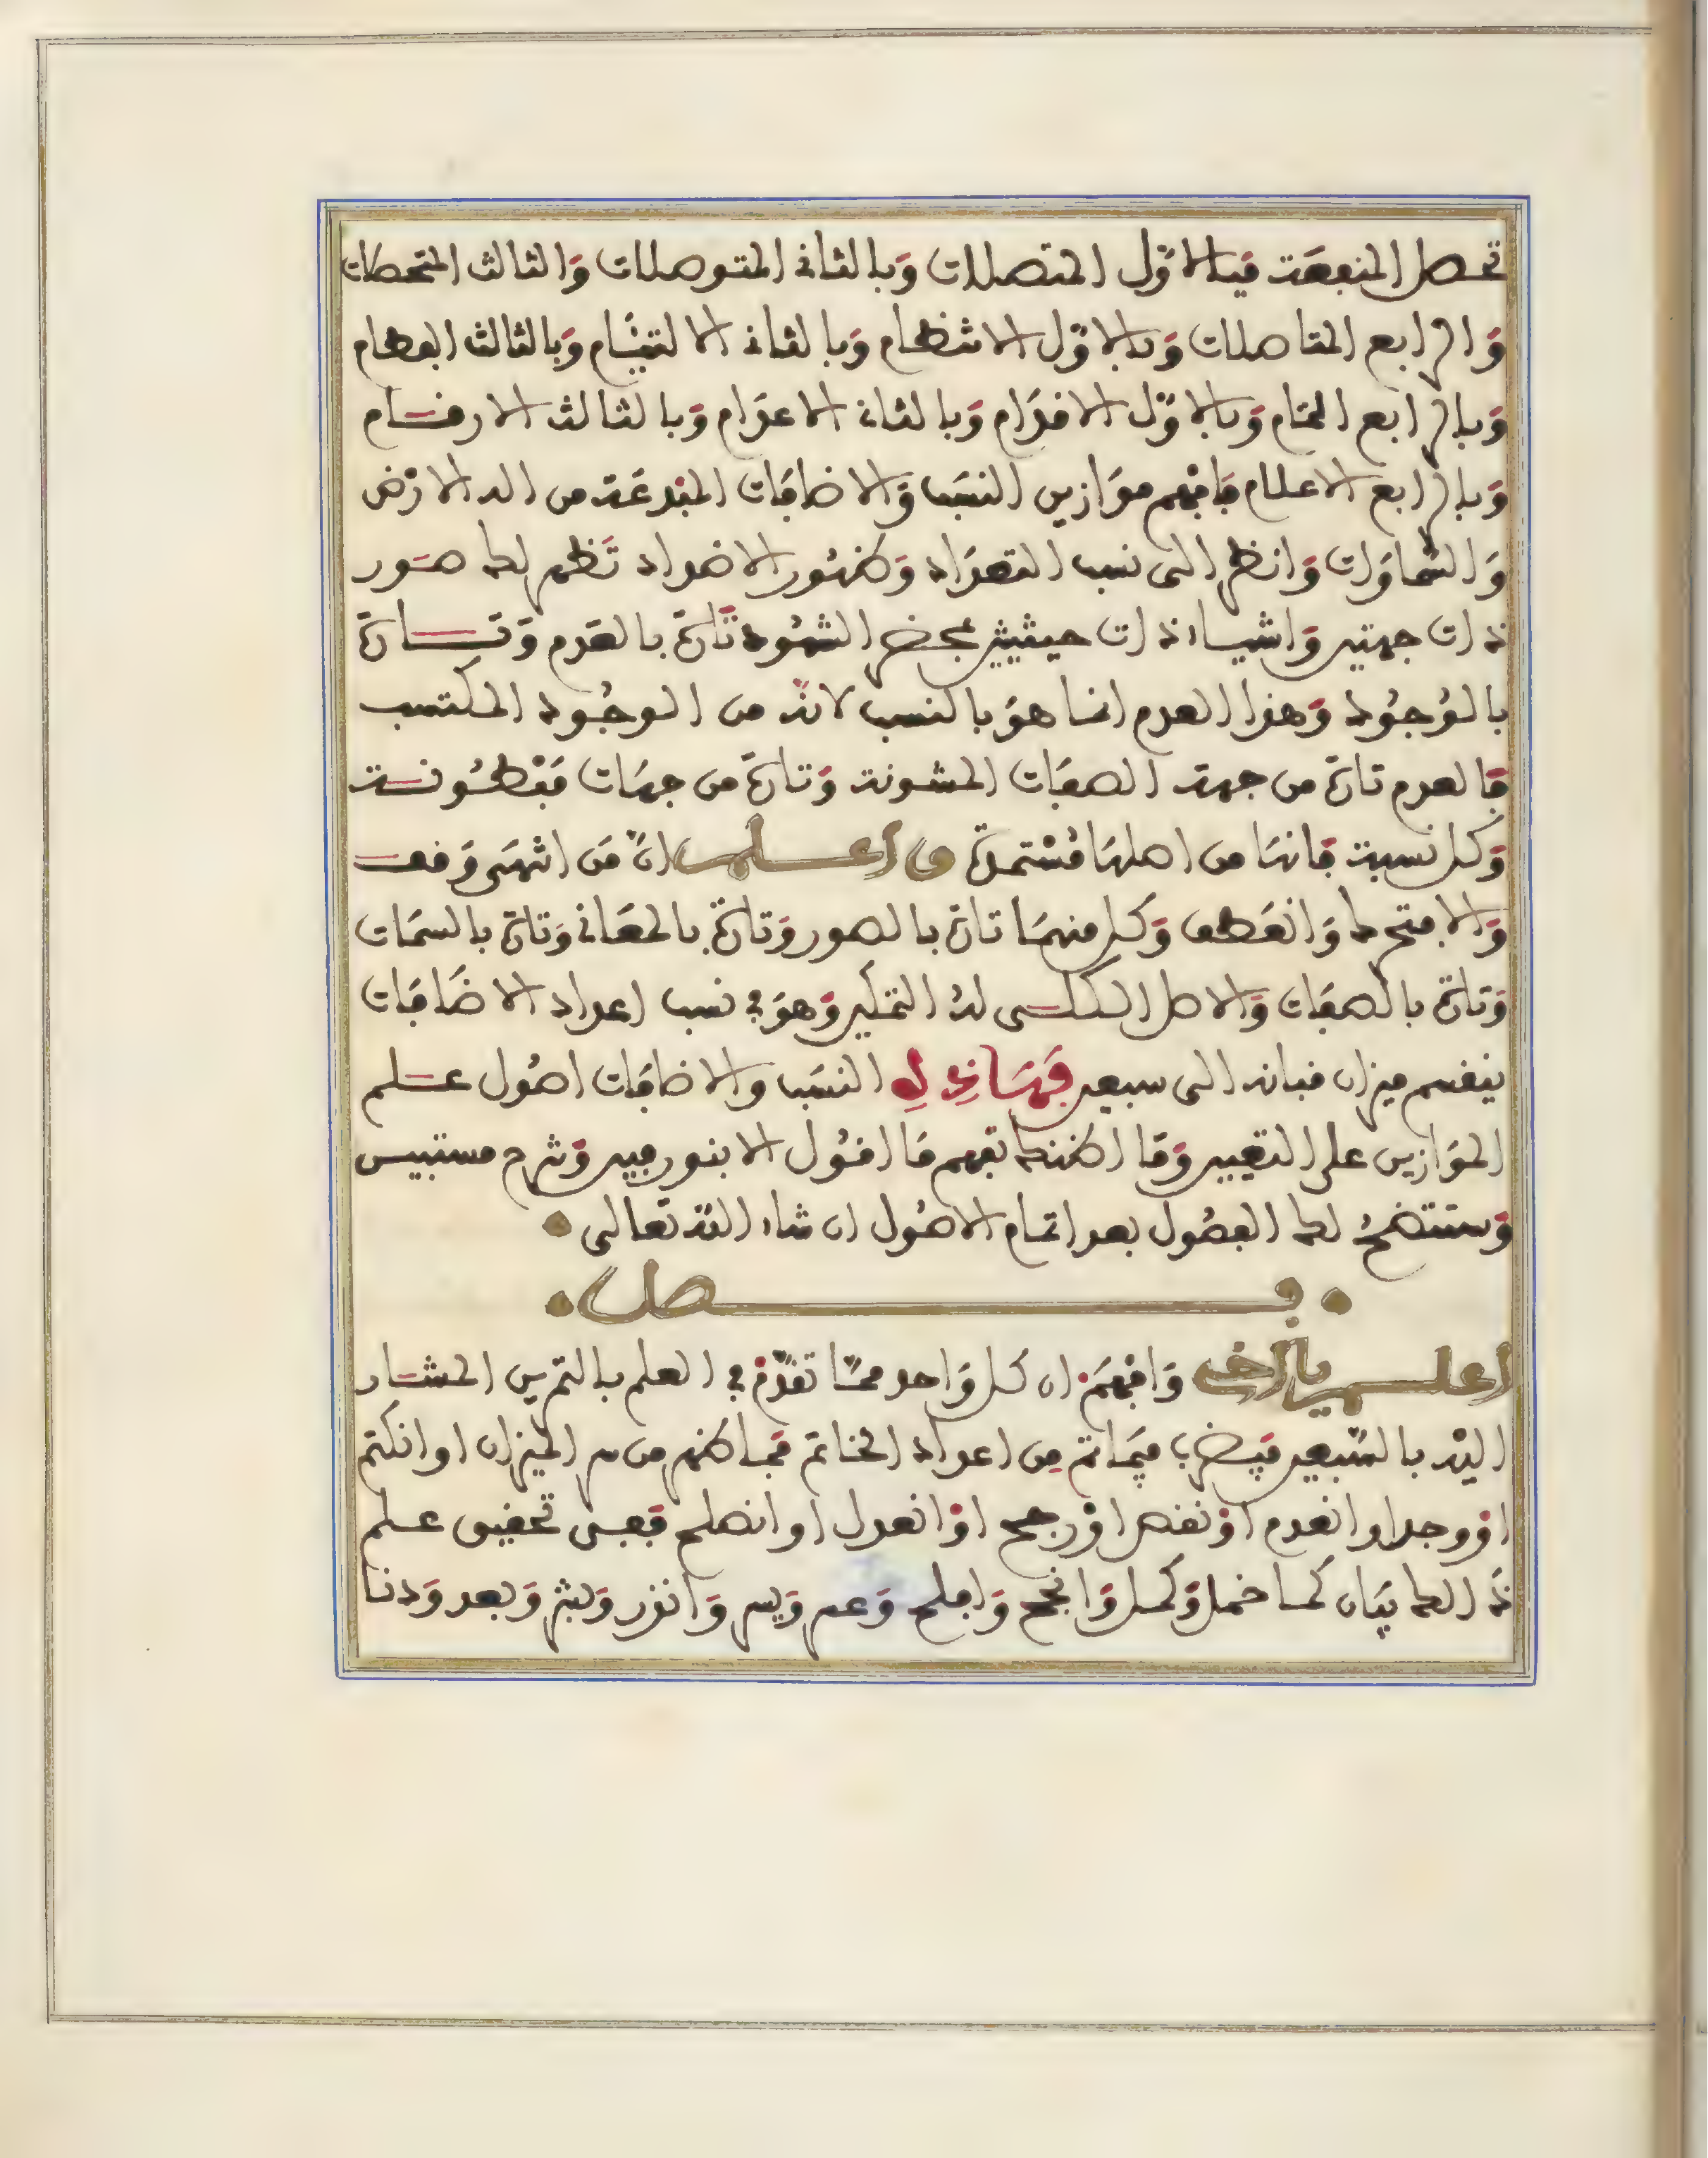 تحصل المنفعة فبالاوّل المتصلات وَبالثانى المتوصلات وَالثالث المتحصلات
وَالرابع المتاصلات وَبالاوّل الانتظام وَبالثانى الالتئام وَبالثالث الفطام
وَبالرابع الختام وَبالاوّل الاقدَام وَبالثانى الاعدَام وَبالثالث الارقسام
وَبالرابع الاعلام فافهم موَازين النسَب وَالاضافات المبدعَة من الله الارْض
وَالسّماوَات وَانظر الى نسب التعدَاد وَظهُور الاضداد تَظهر لك صوَر
ذات جهتين وَاشياء ذات حيثيثين بمحض الشهُود تَارة بالعَدم وَتارة
بالوُجوُد وَهذا العدم انما هوَ بالنسب لانّه من الوجُود المكتسب
فالعدم تارة من جهة الصفات المشونة وَتارة من جهَات مَفْطُونة
وَكل نسبة فانهَا من اصلهَا مُشتملة واعلم انّ مَن انتهَى وَقف
وَالا متحرك وَانعَطف وَكل منهمَا تارة بالصور وَتارة بالمعَانى وَتارة بالسمَات
وَتارة بالصفات وَالاصل الكلى لهُ التمكين وَهوَ فى نسب اعداد الاضافات
ينقسم ميزان مبانه الى سبعين فهَاذِهِ النسَب والاضافات اصُول علم
الموَازين على التعيين وَمَا اظنك تفهم مَا اقوُل الا بنور مبين وَشرح مستبين
وَستتضحُ لك الفصُول بعد اتمام الاصُول ان شاء اللّه تعالى
فصل
اعلم يا اخى وَافهَمْ ان كل وَاحد ممّا تقدّمْ فى العلم بالتمرين المشار
اليْه بالسّبعين فيضرب فيمَا تم مِن اعداد الخاتم فمَا ظهر من سر الميزان او انكتم
اوْ وجد او انعدم اوْ نقص اوْ رجح اوْ انعدل او انصلح فعن تحقيق علم
ذَالك بيَان كما خمل وَكمل وَانجح وَافلح وَعسر وَيسر وَانذر وَبشر وَبعد وَدنا